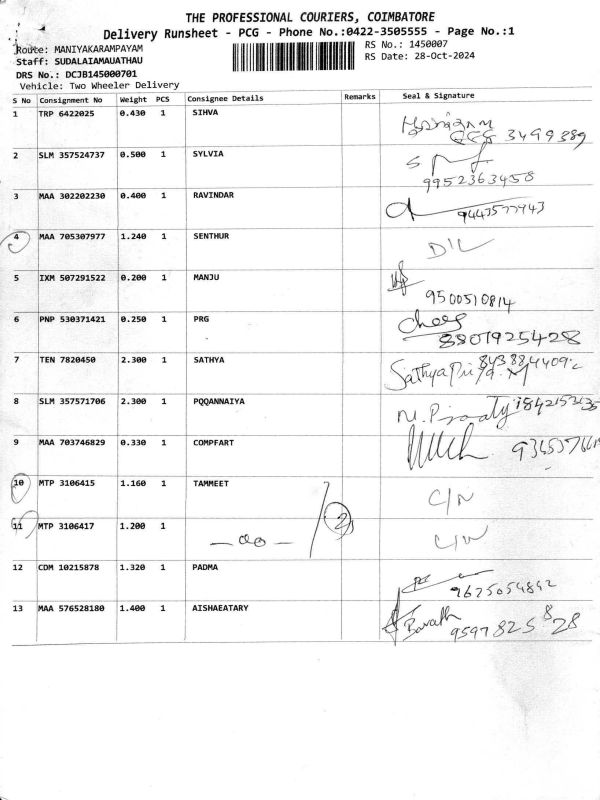 THE PROFESSIONAL COURIERS, COIMBATORE
Delivery Runsheet - PCG - Phone No.:0422-3505555 - Page No.:1
Route: MANIYAKARAMPAYAM
RS No.: 1450007
Staff: SUDALAIAMAUATHAU
RS Date: 28-Oct-2024
DRS No.: DCJB145000701
Vehicle: Two Wheeler Delivery
S No Consignment No Weight PCS Consignee Details Remarks Seal & Signature
1 TRP 6422025 0.430 1 SIHVA
3499389
2 SLM 357524737 0.500 1 SYLVIA
9952363458
3 MAA 302202230 0.400 1 RAVINDAR
9443577943
4 MAA 705307977 1.240 1 SENTHUR D'L
5 IXM 507291522 0.200 1 MANJU
9500510814
6 PNP 530371421 0.250 1 PRG
8801925428
7 TEN 7820450 2.300 1 SATHYA
8 SLM 357571706 2.300 1 PQQANNAIYA
9 MAA 703746829 0.330 1 COMPFART
10 MTP 3106415 1.160 1 TAMMEET C/N
11 MTP 3106417 1.200 1 —do— 2 C/N
12 CDM 10215878 1.320 1 PADMA
9675054842
13 MAA 576528180 1.400 1 AISHAEATARY
Barath
9597825828